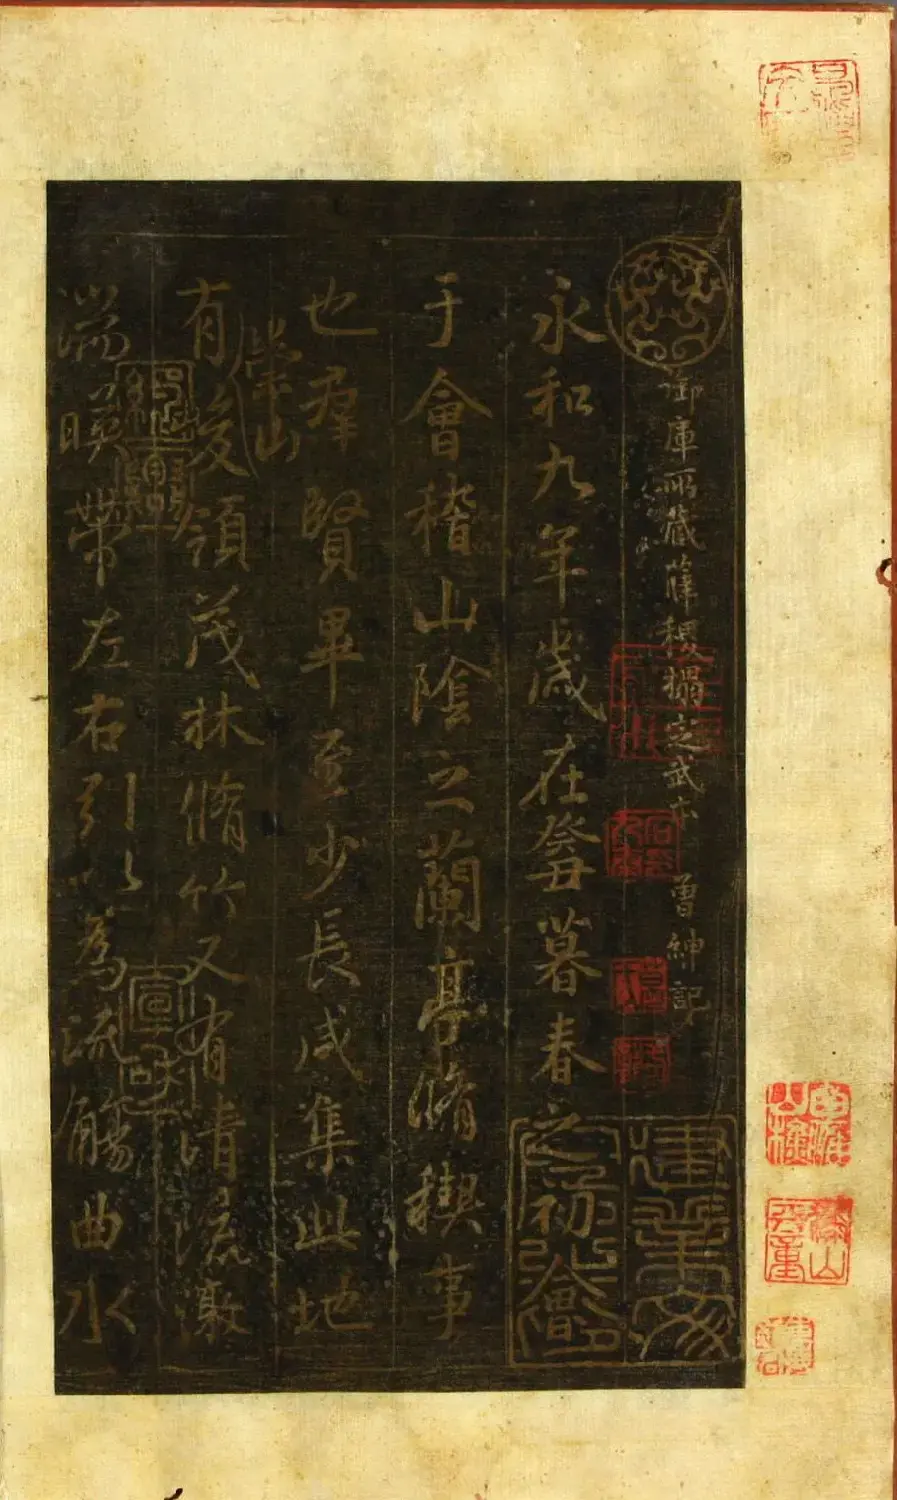 御庫所藏薛稷搨定武本 曾紳記
永和九年歲在癸丑暮春之初會
于會稽山陰之蘭亭脩稧事
也羣賢畢至少長咸集此地
有崇山峻領茂林脩竹又有清流激
湍暎帶左右引以為流觴曲水
建業文房之印